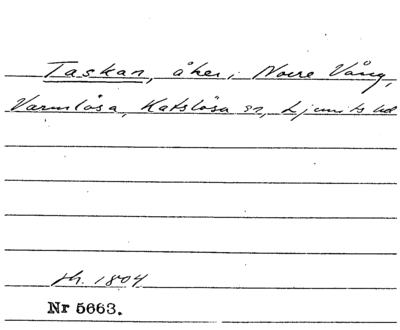 Taskan, åker, Norre Vång,
Varmlösa, Katslösa sn, Ljunits hd
sk. 1804
Nr 5663.